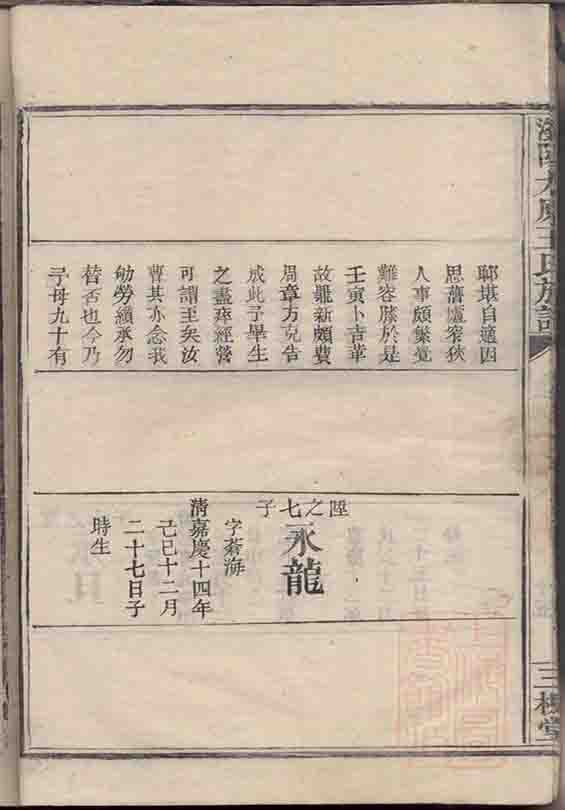 陽大
王氏族譜
三槐堂
聊堪自適因
思舊廬窄狹
人事頗繁覺
難容膝於是
壬寅卜吉革
故鼎新頗費
周章方克告
成此予畢生
之盡瘁經營
可謂至矣汝
曹其亦念我
劬勞續承勿
替否也今乃
予母九十有
陞之七子
永龍
字蒼海
清嘉慶十四年
己巳十二月
二十七日子
時生